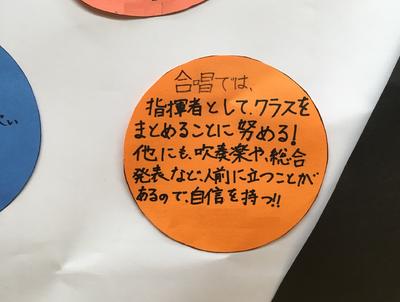 合唱では、
指揮者として、クラスを
まとめることに努める!
他にも、吹奏楽や、総合
発表など、人前に立つことが
あるので、自信を持つ!!